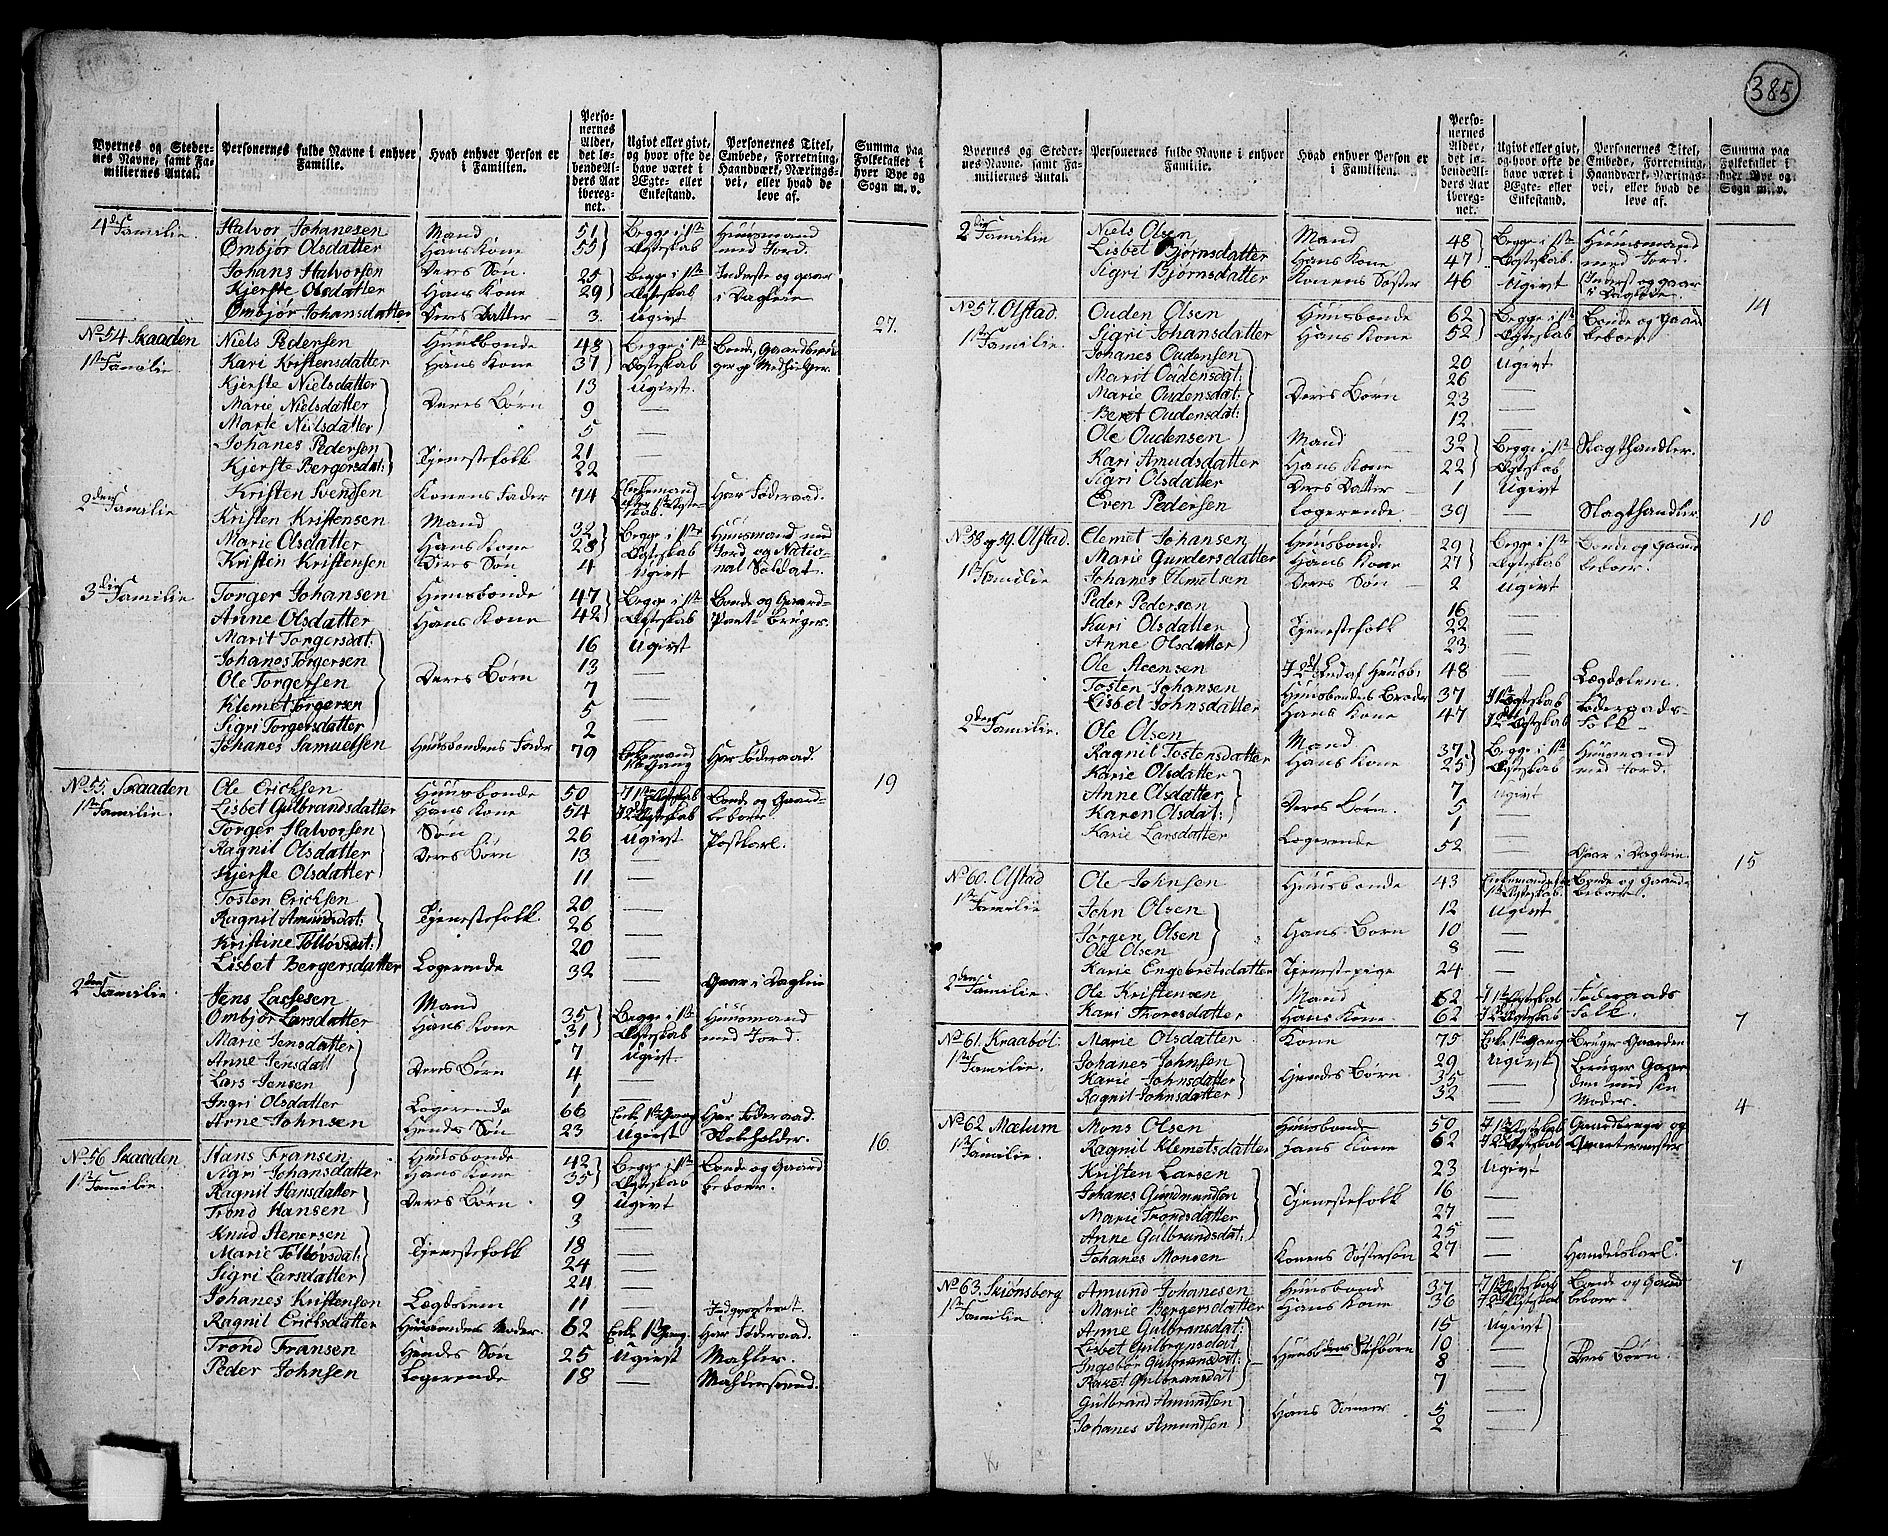 385
Byernes og Stedernes Navne, samt Familiernes Antal.
Personernes fulde Navne i enhver Familie.
Hvad enhver Person er i Familien.
Personernes Alder, det løbende Alders Aar iberegnet.
Ugivt eller givt, og hvor ofte de have været i Ægte- eller Enkestand.
Personernes Titel, Embede, Forretning, Haandværk, Næringsvei, eller hvad de leve af.
Summa paa Folketallet i hver Bye og Sogn m. v.
4de Familie. Halvor Johanesen Mand 51 Begge i 1ste Huusmand
Ombjør Olsdatter Hans Kone 55 Ægteskab med Jord.
Johans Halvorsen Deres Søn. 25 Begge i 1ste Inderste og gaaer
Kjerste Olsdatter Hans Kone 29 Ægteskab i Dagleie
Ombjør Johansdatter Deres Datter 3. Ugivt 27.
No 54 Skaaden Niels Pedersen Huusbonde 48 Begge i 1ste Bonde, Gaardbru
1ste Familie Kari Kristensdatter Hans Kone 37 Ægteskab ger og Medhielper
Kjerste Nielsdatter 13 Ugivst
Marie Nielsdatter Deres Børn 9 —
Marte Nielsdatter 5 —
Johanes Pedersen 21 —
Kjerste Bergersdat: Tjenestefolk 22 —
Kristen Svendsen Konens Fader 74 Enkemand Har Føderaad.
2den Familie Kristen Kristensen Mand 32 Begge i 1ste Huusmand med
Marie Olsdatter Hans Kone 28 Ægteskab Jord og Natio-
Kristen Kristensen Deres Søn 4 Ugivst nal Soldat.
3die Familie Torger Johansen Huusbonde 47 Begge i 1ste Bonde og Gaard-
Anne Olsdatter Hans Kone 42 Ægteskab Part bruger.
Marit Torgersdat: 16 Ugivst
Johanes Torgersen 13 —
Ole Torgersen Deres Børn 7 —
Klemet Torgersen 5 —
Sigri Torgersdatter 2 —
Johanes Samuelsen Huusbondens Fader 79 Enkemand 1ste Gang Har Føderaad. 19
No 55. Skaaden Ole Erichsen Huusbonde 50 I 1ste Ægteskab Bonde og Gaard-
1ste Familie. Lisbet Gulbrandsdatter Hans Kone 54 I 2det Ægteskab beboer
Torger Halvorsen Søn 26 Ugivst Postkarl.
Ragnil Olsdatter Deres Børn 13 —
Kjerste Olsdatter 11 —
Tosten Erichsen 20 —
Ragnil Amundsdat: Tjenestefolk. 26 —
Kristine Tolløvsdat: 20 —
Lisbet Bergersdatter Logerende 32 — Gaar i Dagleie
2den Familie. Jens Lassesen Mand 35 Begge i 1ste Huusmand
Ombjør Larsdatter Hans Kone 31 Ægteskab med Jord.
Marie Jensdatter 7 Ugivst
Anne Jensdatt Deres Børn 4 —
Lars Jensen 1 —
Ingri Olsdatter Logerende 66 Enke 1ste Gang Har Føderaad.
Arne Johnsen Hendes Søn 23 Ugivst Skoleholder. 16.
No 56 Skaaden. Hans Fransen Huusbonde 42 Begge i 1ste Bonde og Gaard
1ste Familie. Sigri Johansdatter Hans Kone 35 Ægteskab beboer.
Ragnil Hansdatter Deres Børn. 9 Ugivst
Trond Hansen 3 —
Knud Stenersen 18 —
Marie Tolløvsdat: Tjenestefolk 24 —
Sigri Larsdatter 24 —
Johanes Kristensen Lægdslem 11 —
Ragnil Erichsdatter Huusbondens Moder. 62 Enke 1ste Gang. Har Føderaad.
Trond Fransen Hendes Søn 25 Ugivst Mahler.
Peder Johnsen Logerende 18 — Mahlersvend.
Byernes og Stedernes Navne, samt Familiernes Antal.
Personernes fulde Navne i enhver Familie.
Hvad enhver Person er i Familien.
Personernes Alder, det løbende Alders Aar iberegnet.
Ugivt eller givt, og hvor ofte de have været i Ægte- eller Enkestand.
Personernes Titel, Embede, Forretning, Haandværk, Næringsvei, eller hvad de leve af.
Summa paa Folketallet i hver Bye og Sogn m. v.
2den Familie Niels Olsen Mand 48 Begge i 1ste Huusmand
Lisbet Bjørnsdatter Hans Kone 47 Ægteskab. med Jord.
Sigri Bjørnsdatter Konens Søster 46 Ugivt Inderst og gaar i Dagleie. 14
No 57. Olstad. Ouden Olsen Huusbonde 62 Begge i 1ste Bonde og Gaard
1ste Familie. Sigri Johansdatter Hans Kone 52 Ægteskab beboer.
Johanes Oudensen 20 Ugivt
Marit Oudensdat: 26 —
Marie Oudensdat: Deres Børn 23 —
Beret Oudensdat: 12. —
Ole Oudensen Mand 32 Begge i 1ste Slagthandler.
Kari Amudsdatter Hans Kone 22 Ægteskab
Sigri Olsdatter Deres Datter 1 Ugivt
Even Pedersen Logerende 39 — Slagthandler. 10
No 58 og 59. Olstad. Clemet Johansen Huusbonde 29 Begge i 1ste Bonde og Gaard
1ste Familie Marie Gundersdatter Hans Kone 27 Ægteskab beboer.
Johanes Clemetsen Deres Søn 2 Ugivt
Peder Pedersen 16 —
Kari Olsdatter Tjenestefolk 22 —
Anne Olsdatter 23 —
Ole Steensen 48 — Lægdslem.
Tosten Johansen Huusbondes Broder 37 I 1ste Ægteskab Føderaads-
Lisbet Johnsdatter Hans Kone 47 I 2det Ægteskab Folk
2den Familie. Ole Olsen Mand 37 Begge i 1ste Huusmand
Ragnil Tostensdatter Hans Kone 25 Ægteskab med Jord.
Karie Olsdatter 7 Ugivst
Anne Olsdatter Deres Børn. 5 —
Karen Olsdat: 1 —
Karie Larsdatter Logerende 52 — Gaar i Dagleie. 15
No 60. Olstad Ole Johnsen Huusbonde 43 Bonde og Gaard
1ste Familie John Olsen 12 Ugivt beboer.
Jørgen Olsen Hans Børn 10 —
Ole Olsen 8 —
Karie Engebretsdatter Tjenestepige 24 —
2den Familie. Ole Kristensen Mand 62 I 1ste Ægteskab Føderaads
Kari Thoresdatter Hans Kone 62 I 2det Ægteskab Folk. 7
No 61. Kraabøl. Marie Olsdatter Kone 75 Enke 1ste Gang Bruger Gaarden
1ste Familie. Johanes Johnsen 29 Ugivst Bruger Gaar
Karie Johnsdatter Hendes Børn 35 — den med sin
Ragnil Johnsdatter 32 — Moder. 4
No 62 Mælum Mons Olsen Huusbonde 50 I 1ste Ægteskab Gaardbruger og
1ste Familie. Ragnil Klemetsdatter Hans Kone 62 I 2det Ægteskab Qvartermester
Kristen Larsen 23 Ugivt
Johanes Gundmundsen Tjenestefolk 16 —
Marie Trondsdatter 27 —
Anne Gulbrandsdat: 25 —
Johanes Monsen Konens Søstersøn 27 — Handelskarl. 7
No 63. Skiønsberg Amund Johanesen Huusbonde 37 I 1ste Ægteskab Bonde og Gaard
1ste Familie Marie Bergersdatter Hans Kone 36 I 2det Ægteskab beboer.
Anne Gulbransdat: 15 Ugivst
Lisbet Gulbransdat Huusbondens Stifbørn 10 —
Ingebør Gulbransdat: 8 — Deres Børn.
Raket Gulbransdat 7 —
Gulbrand Amundsen Hans Sønner 5 —
Johanes Amundsen 2